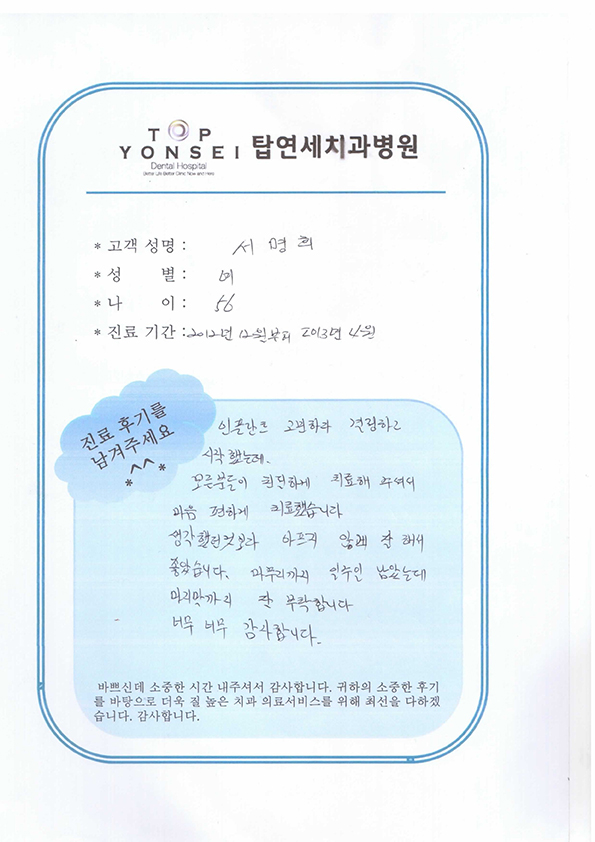 TOP
YONSEI 탑연세치과병원
Dental Hospital
Better Life Better Clinic Now and Here
* 고객 성명 : 서명희
* 성 별 : 여
* 나 이 : 56
* 진료 기간 : 2012년 12월부터 2013년 4월
진료 후기를
남겨주세요
*^^*
인플란트 고변하다 결정하고
시작했는데.
모든분들이 친절하게 치료해 주셔서
마음 편하게 치료했습니다
생각했던것보다 아프지 않게 잘 해서
좋았습니다. 마무리까지 일주인 남았는데
마지막까지 잘 부탁합니다
너무 너무 감사합니다.
바쁘신데 소중한 시간 내주셔서 감사합니다. 귀하의 소중한 후기
를 바탕으로 더욱 질 높은 치과 의료서비스를 위해 최선을 다하겠
습니다. 감사합니다.